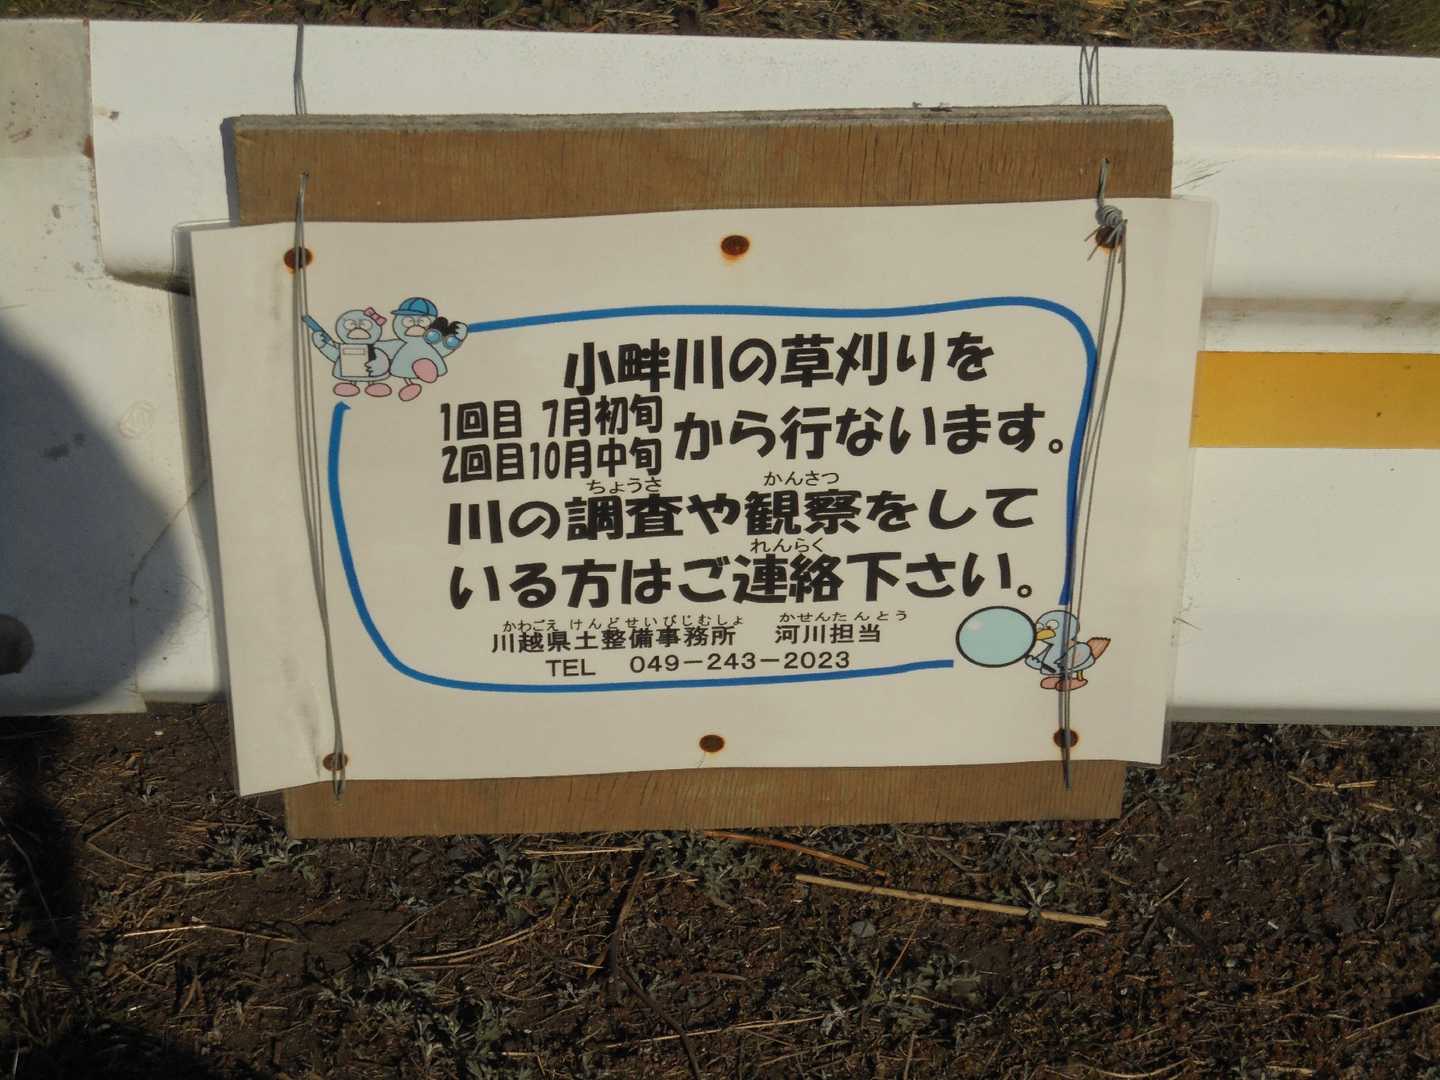 小畔川の草刈りを
1回目 7月初旬
2回目10月中旬
から行ないます。
ちょうさ かんさつ
川の調査や観察をして
れんらく
いる方はご連絡下さい。
かわごえ けんどせいびじむしょ かせんたんとう
川越県土整備事務所 河川担当
TEL 049－243－2023